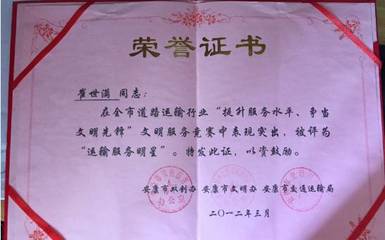 荣誉证书
崔世满 同志：
在全市道路运输行业“提升服务水平、争当
文明先锋”文明服务竞赛中表现突出，被评为
“运输服务明星”。特发此证，以资鼓励。
安康市双创办 安康市文明办 安康市交通运输局
二〇一二年三月